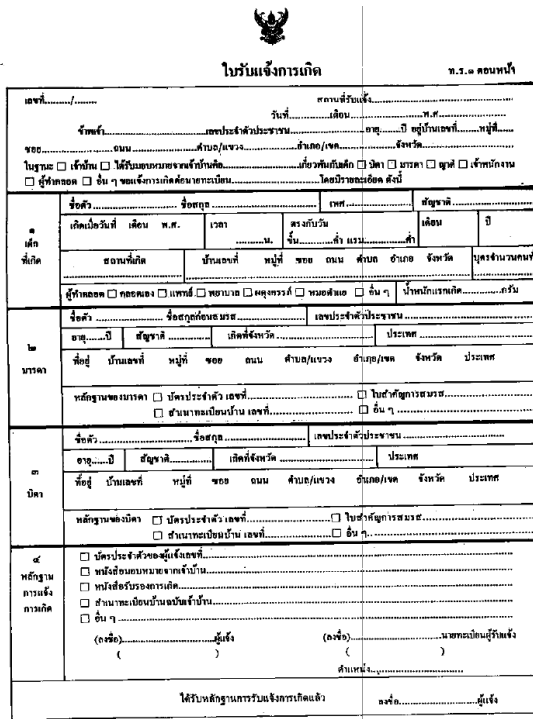 ใบรับแจ้งการเกิด
ท.ร.๑ ตอนหน้า
เลขที่........./........ สถานที่รับแจ้ง
วันที่ เดือน พ.ศ.
ข้าพเจ้า เลขประจำตัวประชาชน อายุ ปี อยู่บ้านเลขที่ หมู่ที่
ซอย ถนน ตำบล/แขวง อำเภอ/เขต จังหวัด
ในฐานะ ☐ เจ้าบ้าน ☐ ได้รับมอบหมายจากเจ้าบ้านคือ เกี่ยวพันกับเด็ก ☐ บิดา ☐ มารดา ☐ ญาติ ☐ เจ้าพนักงาน
☐ ผู้ทำคลอด ☐ อื่น ๆ ขอแจ้งการเกิดต่อนายทะเบียน โดยมีรายละเอียด ดังนี้
๑
เด็ก
ที่เกิด
ชื่อตัว ชื่อสกุล เพศ สัญชาติ
เกิดเมื่อวันที่ เดือน พ.ศ. เวลา ตรงกับวัน เดือน ปี
น. ขึ้น ค่ำ แรม ค่ำ
สถานที่เกิด บ้านเลขที่ หมู่ที่ ซอย ถนน ตำบล อำเภอ จังหวัด บุตรจำนวนคนที่
ผู้ทำคลอด ☐ คลอดเอง ☐ แพทย์ ☐ พยาบาล ☐ ผดุงครรภ์ ☐ หมอตำแย ☐ อื่น ๆ น้ำหนักแรกเกิด กรัม
๒
มารดา
ชื่อตัว ชื่อสกุลก่อนสมรส เลขประจำตัวประชาชน
อายุ ปี สัญชาติ เกิดที่จังหวัด ประเทศ
ที่อยู่ บ้านเลขที่ หมู่ที่ ซอย ถนน ตำบล/แขวง อำเภอ/เขต จังหวัด ประเทศ
หลักฐานของมารดา ☐ บัตรประจำตัว เลขที่ ☐ ใบสำคัญการสมรส
☐ สำเนาทะเบียนบ้าน เลขที่ ☐ อื่น ๆ
๓
บิดา
ชื่อตัว ชื่อสกุล เลขประจำตัวประชาชน
อายุ ปี สัญชาติ เกิดที่จังหวัด ประเทศ
ที่อยู่ บ้านเลขที่ หมู่ที่ ซอย ถนน ตำบล/แขวง อำเภอ/เขต จังหวัด ประเทศ
หลักฐานของบิดา ☐ บัตรประจำตัว เลขที่ ☐ ใบสำคัญการสมรส
☐ สำเนาทะเบียนบ้าน เลขที่ ☐ อื่น ๆ
๔
หลักฐาน
การแจ้ง
การเกิด
☐ บัตรประจำตัวของผู้แจ้งเลขที่
☐ หนังสือมอบหมายจากเจ้าบ้าน
☐ หนังสือรับรองการเกิด
☐ สำเนาทะเบียนบ้านฉบับเจ้าบ้าน
☐ อื่น ๆ
(ลงชื่อ) ผู้แจ้ง (ลงชื่อ) นายทะเบียนผู้รับแจ้ง
( ) ( )
ตำแหน่ง
ได้รับหลักฐานการรับแจ้งการเกิดแล้ว ลงชื่อ ผู้แจ้ง